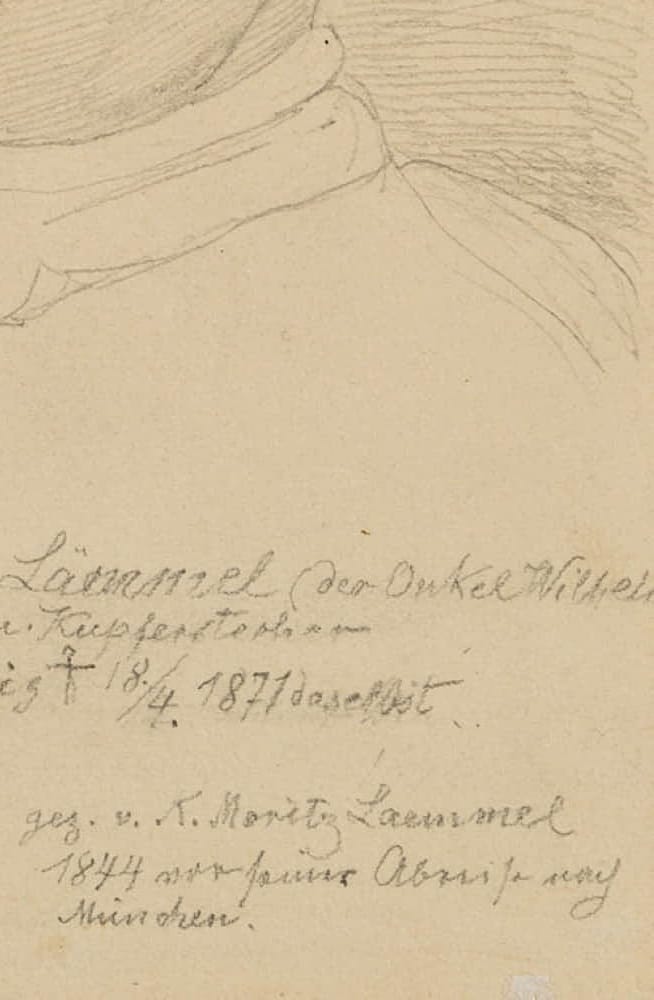 Lämmel (der Onkel Wilhelm
u. Kupferstecher
ig † 18./4. 1871 daselbst
gez. v. K. Moritz Laemmel
1844 vor seiner Abreise nach
München.